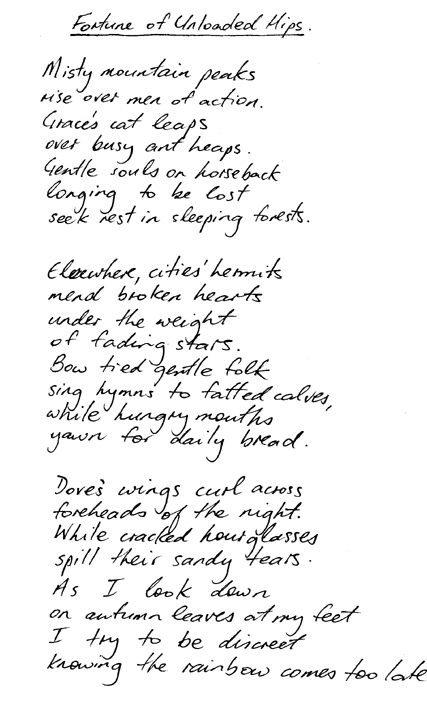 Fortune of Unloaded Hips.
Misty mountain peaks
rise over men of action.
Grace's cat leaps
over busy ant heaps.
Gentle souls on horseback
longing to be lost
seek rest in sleeping forests.
Elsewhere, cities' hermits
mend broken hearts
under the weight
of fading stars.
Bow tied gentle folk
sing hymns to fatted calves,
while hungry mouths
yawn for daily bread.
Dove's wings curl across
foreheads of the night.
While cracked hourglasses
spill their sandy tears.
As I look down
on autumn leaves at my feet
I try to be discreet
knowing the rainbow comes too late